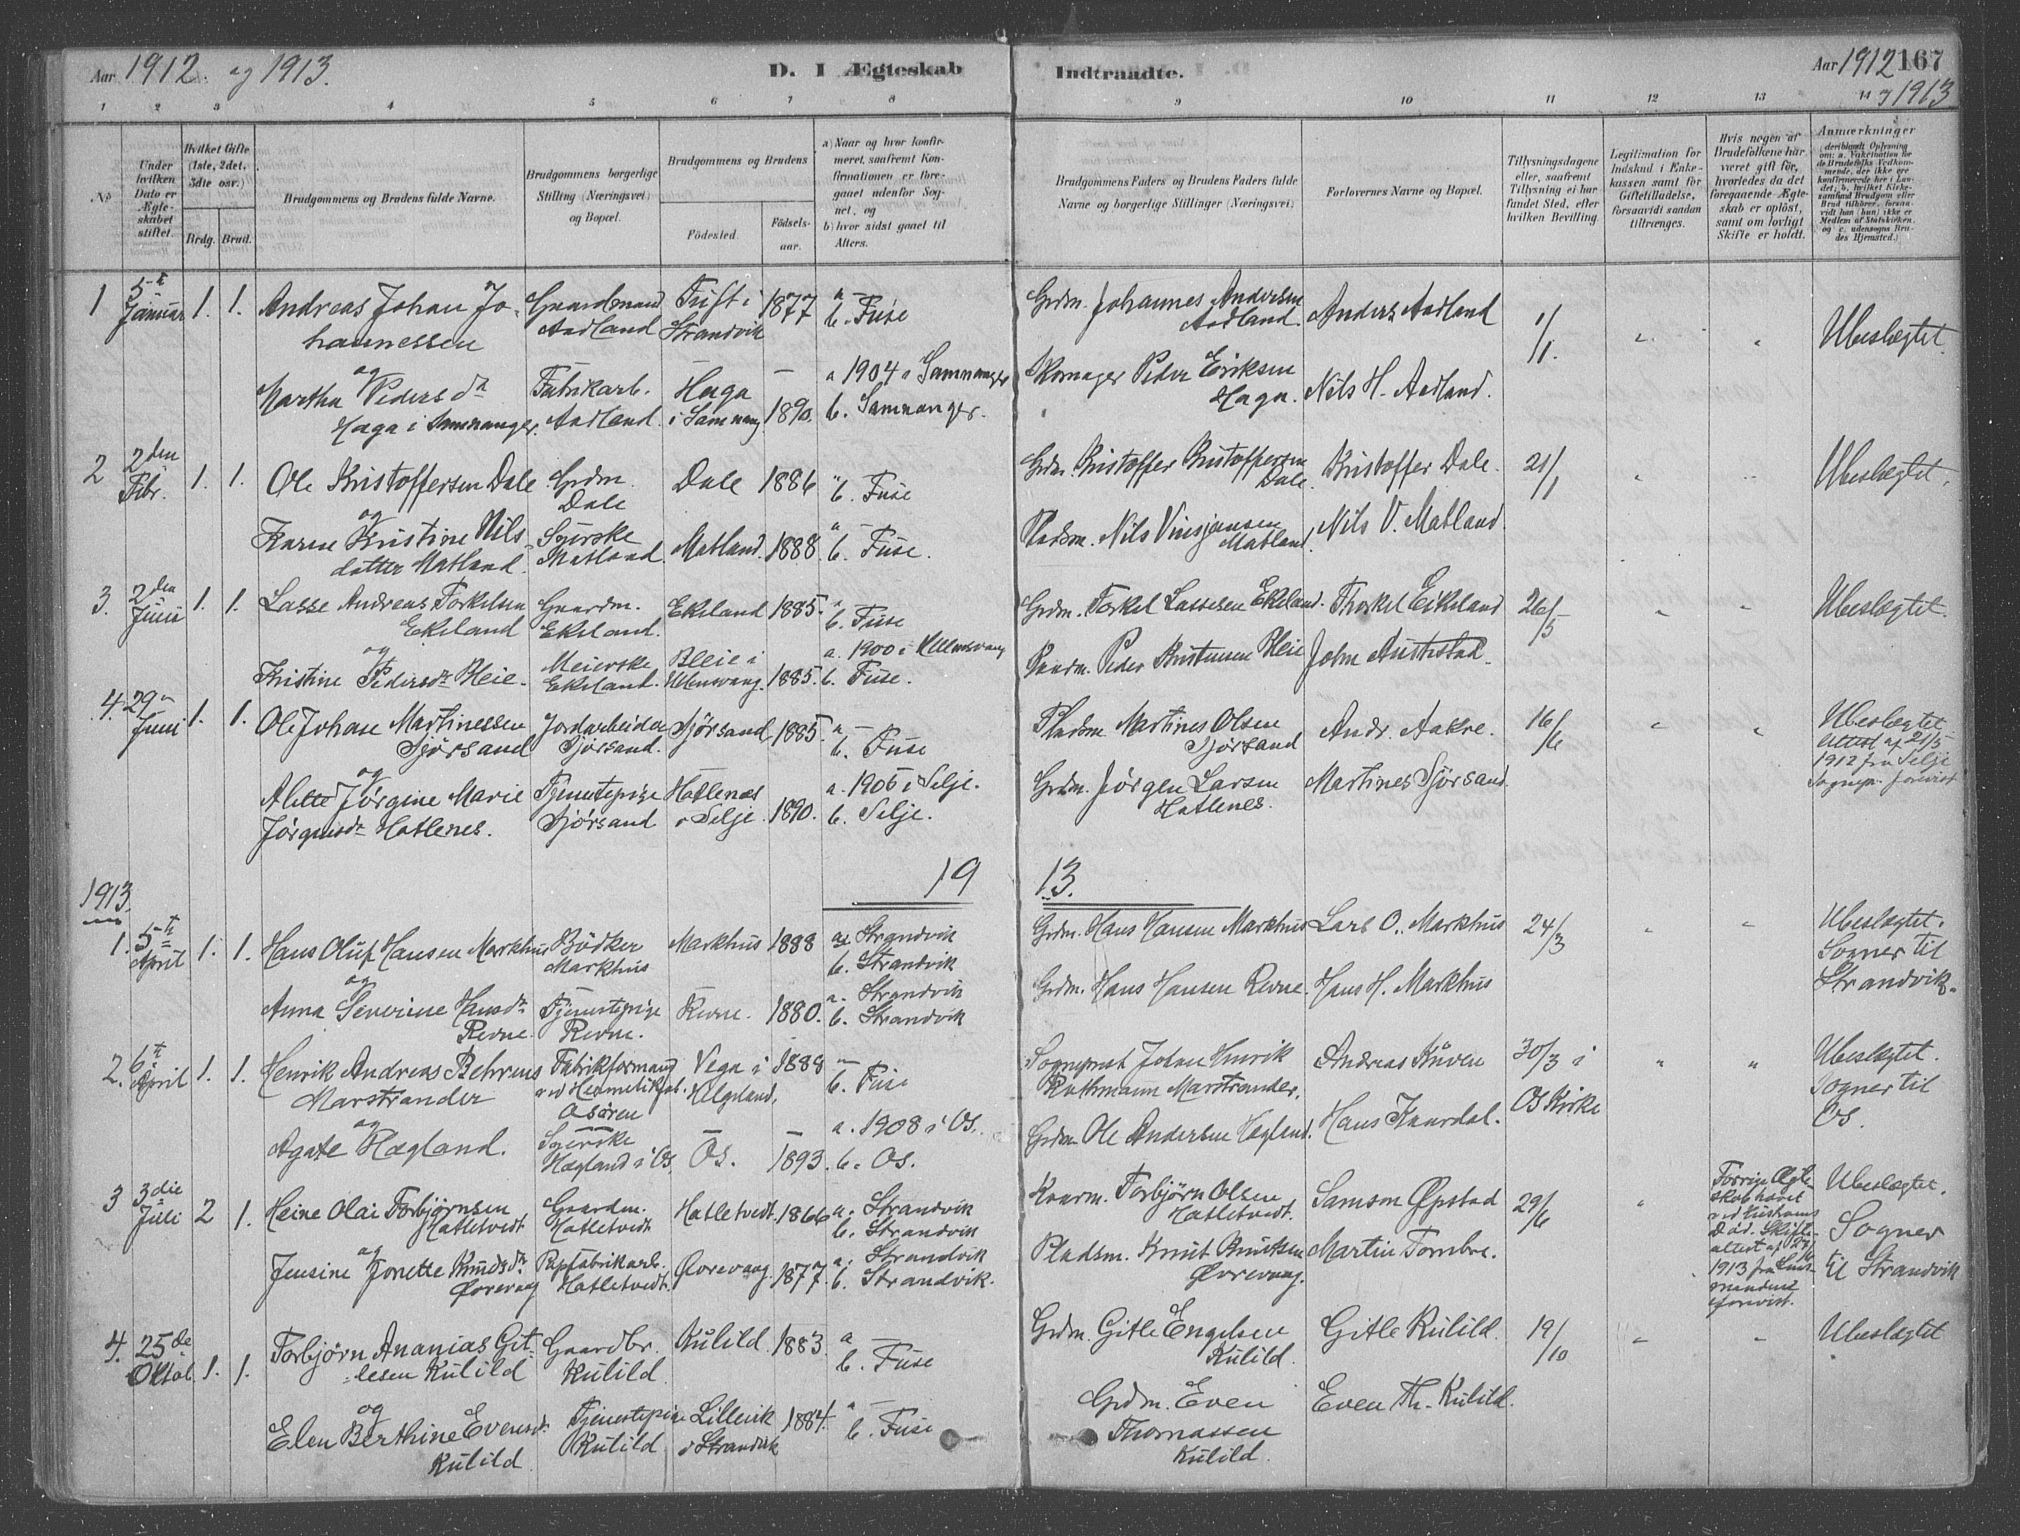 Aar 1912 og 1913.
D. I Ægteskab
Indtraadte.
Aar 1912 167
og 1913
1 2 3 4 5 6 7 8 9 10 11 12 13 14
No
Under hvilken Dato er Ægteskabet stiftet.
Hvilket Gifte (1ste, 2det, 3die osv.)
Brdg. Brud.
Brudgommens og Brudens fulde Navne.
Brudgommens borgerlige Stilling (Næringsvei) og Bopæl.
Brudgommens og Brudens
Födested.
Födselsaar.
a) Naar og hvor konfirmeret, saafremt Konfirmationen er foregaaet udenfor Sognet, og
b) hvor sidst gaaet til Alters.
Brudgommens Faders og Brudens Faders fulde Navne og borgerlige Stillinger (Næringsvei)
Forlovernes Navne og Bopæl.
Tillysningsdagene eller, saafremt Tillysning ei har fundet Sted, efter hvilken Bevilling.
Legitimation for Indskud i Enkekassen samt for Giftetilladelse, forsaavidt saadan tiltrænges.
Hvis nogen af Brudefolkene har været gift för, hvorledes da det foregaaende Ægteskab er oplöst, samt om lovligt Skifte er holdt.
Anmærkninger
(deriblandt Oplysning om: a. Vaksination for de Brudefolks Vedkommende, der ikke ere konfirmerede her i Landet; b. hvilket Kirkesamfund Brudgom eller Brud tilhörer, forsaavidt han (hun) ikke er Medlem af Statskirken, og c. udensogns Brudes Hjemsted.)
1 5te Januar 1. 1. Andreas Johan Johannessen Gaardmand Aadland Tuft i Strandvik 1877 a — b. Fuse Grdm. Johannes Andersen Aadland. Anders Aadland 1/1. " " Ubeslægtet.
og
Martha Pedersdr Haga i Samnanger. Fabrikarb. Aadland. Haga i Samnang. 1890. a 1904 i Samnanger b. Samnanger. Skomager Peder Eriksen Haga. Nils H. Aadland.
2 2den Febr. 1. 1. Ole Kristoffersen Dale Grdm. Dale Dale 1886 a b. Fuse Grdm. Kristoffer Kristoffersen Dale. Kristoffer Dale. 21/1 " " Ubeslægtet.
og
Karen Kristine Nilsdatter Matland. Syerske Matland Matland. 1888. a — b. Fuse. Pladsm. Nils Vinsjansen Matland. Nils V. Matland.
3. 2den Juni 1. 1. Lasse Andreas Torkelsen Ekeland Gaardm. Ekeland. Ekeland 1885. a b. Fuse Grdm. Torkel Lassesen Ekeland. Thorkel Eikeland 26/5 " " Ubeslægtet.
og
Kristine Pedersdr Bleie. Meierske Ekeland. Bleie i Ullensvang. 1885. a. 1900 i Ullensvang b. Fuse. Peder Kristensen Bleie John Austestad.
4. 29n Juni 1. 1. Ole Johan Martinessen Sjørsand Jordarbeider Sjørsand. Sjørsand 1885. a — b. Fuse Pladsm. Martines Olsen Sjørsand Andr. Aakre. 16/6 " " Ubeslægtet
Attest af 21/5 1912 fra Selje Sognepr. forevist
og
Alette Jørgine Marie Jørgensdr Hatlenes. Tjenestepige Sjørsand Hatlenes i Selje. 1890. a. 1906 i Selje. b. Selje. Grdm. Jørgen Larsen Hatlenes. Martines Sjørsand
19 13.
1913.
1. 5te April 1. 1. Hans Oluf Hansen Markhus Bödker Markhus Markhus 1888 a. Strandvik b. Strandvik Grdm. Hans Hansen Markhus Lars O. Markhus 24/3 " " Ubeslægtet. Sogner til Strandvik.
og
Anna Severine Hansdr Revne. Tjenestepige Revne. Revne. 1880. a. Strandvik b. Strandvik Grdm. Hans Hansen Revne. Hans H. Markhus
2. 6te April 1. 1. Henrik Andreas Behrens Marstrander Fabrikformand ved Hermetikfab. Osören Vega i Helgeland. 1888 a — b. Fuse Sogneprest Johan Henrik Rathmann Marstrander. Andreas Kuven 30/3 i Os Kirke " " Ubeslægtet. Sogner til Os.
og
Agate Hægland. Syerske Hægland i Os. Os. 1893. a. 1908 i Os. b. Os. Grdm. Ole Andersen Hægland. Hans Kaardal.
3 3die Juli 2 1. Heine Olai Torbjørnsen Hatletvedt Gaardm. Hatletvedt Hatletvedt. 1866 a. Strandvik b. Strandvik Torbjørn Olsen Hatletvedt. Samson Øpstad 29/6 " Forrige Ægteskab hævet ved Hustruens Død. Skifteattest af 1913 fra Lensmanden forevist. Ubeslægtet. Sogner til Strandvik
og
Jensine Jonette Knudsdr Øvrevaag Papfabrikarb. Hatletvedt. Øvrevaag 1877. a. Strandvik b. Strandvik. Pladsm. Knut Knutsen Øvrevaag. Martin Tombre.
4. 25de Oktob. 1. 1. Torbjørn Ananias Gitlesen Kulild Gaardbr. Kulild Kulild. 1883. a — b. Fuse Grdm. Gitle Engelsen Kulild. Gitle Kulild. 19/10 " " Ubeslægtet
og
Elen Berthine Evensdr Kulild Tjenestepige Kulild Lillevik i Strandvik 1884. a — b. Fuse Grdm. Even Thomassen Kulild. Even Th. Kulild.